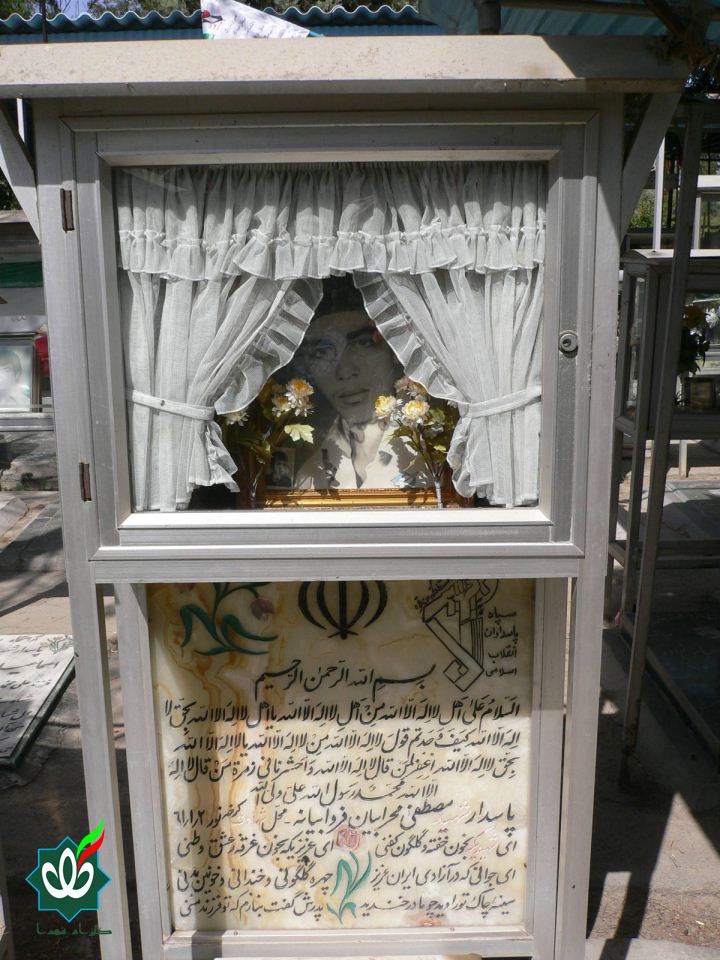 سپاه
پاسداران
انقلاب
اسلامی
بسم الله الرحمن الرحیم
السلام علی اهل لا اله الا الله من اهل لا اله الا الله یا اهل لا اله الا الله بحق لا
اله الا الله کیف وجدتم قول لا اله الا الله من لا اله الا الله یا لا اله الا الله
بحق لا اله الا الله اغفر لمن قال لا اله الا الله واحشرنا فی زمرة من قال لا اله
الا الله محمد رسول الله علی ولی الله
پاسدار شهید مصطفی محرابیان فروانیانه محل شهادت کرخه نور ۶۱/۱/۲
ای شهیدی که بخون خفته و گلگون کفنی ای عزیزیکه بخون غرقه عشق وطنی
ای جوانی که در آزادی ایران عزیز چهره گلگونی و خندانی و خونین بدنی
سینه چاک تو را دید چو مادر خندید پدرش گفت بنازم که تو فرزند منی